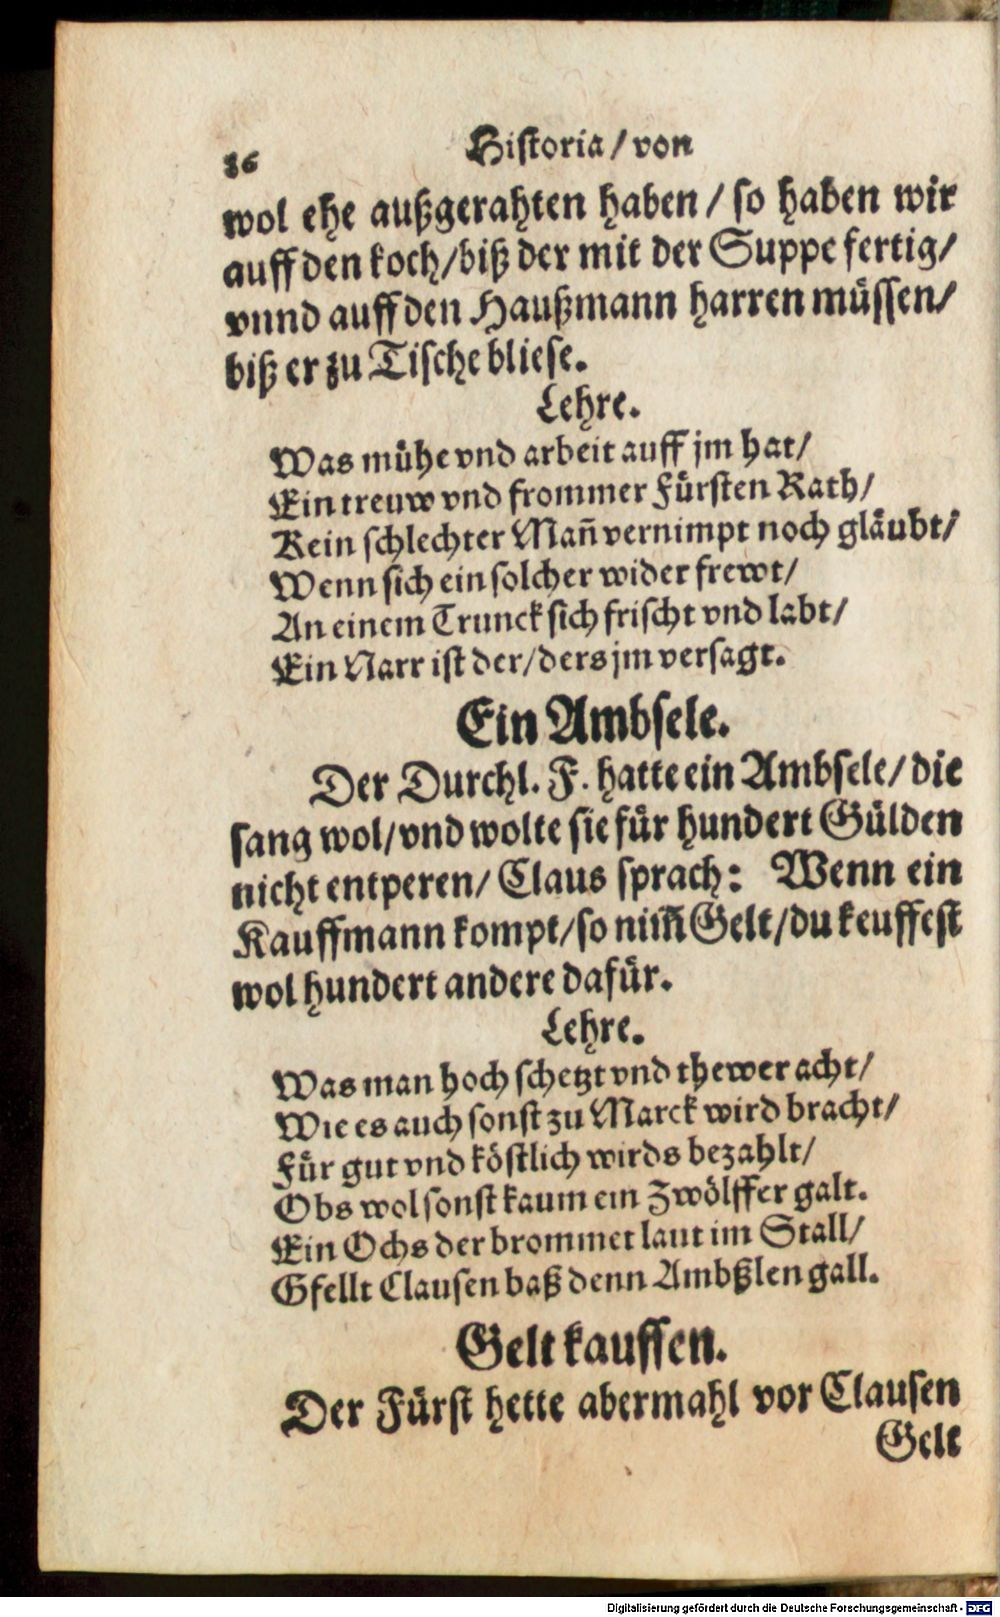 36 Historia / von
wol ehe außgerahten haben / so haben wir
auff den koch / biß der mit der Suppe fertig /
vnnd auff den Haußmann harren müssen /
biß er zu Tische bliese.
Lehre.
Was mühe vnd arbeit auff jm hat /
Ein treuw vnd frommer Fürsten Rath /
Kein schlechter Mañ vernimpt noch gläubt /
Wenn sich ein solcher wider frewt /
An einem Trunck sich frischt vnd labt /
Ein Narr ist der / ders jm versagt.
Ein Ambsele.
Der Durchl. F. hatte ein Ambsele / die
sang wol / vnd wolte sie für hundert Gülden
nicht entperen / Claus sprach: Wenn ein
Kauffmann kompt / so nim̃ Gelt / du keuffest
wol hundert andere dafür.
Lehre.
Was man hoch schetzt vnd thewer acht /
Wie es auch sonst zu Marck wird bracht /
Für gut vnd köstlich wirds bezahlt /
Obs wol sonst kaum ein Zwölffer galt.
Ein Ochs der brommet laut im Stall /
Gfellt Clausen baß denn Ambßlen gall.
Gelt kauffen.
Der Fürst hette abermahl vor Clausen
Gelt
Digitalisierung gefördert durch die Deutsche Forschungsgemeinschaft - DFG